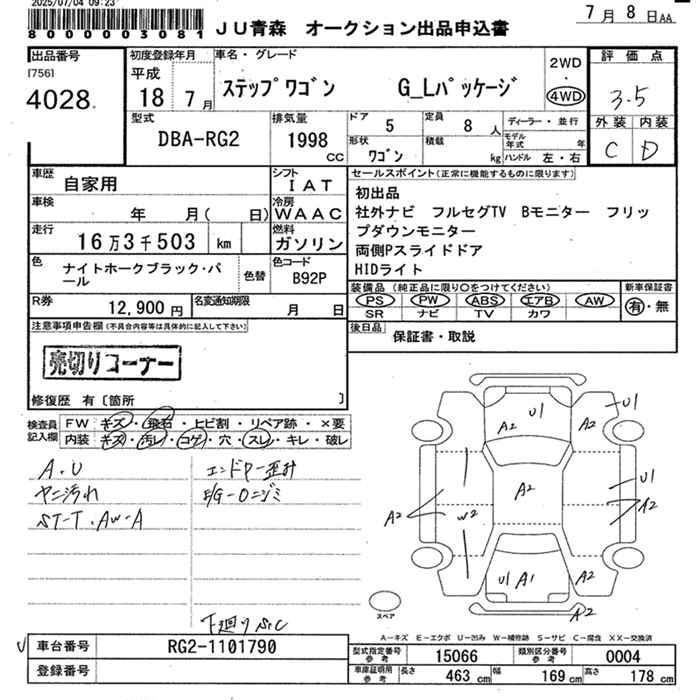 2025/07/04 09:23
8000003081
JU青森 オークション出品申込書
7月8日AA
出品番号
[756]
4028
初度登録年月
平成
18 7月
車名・グレード
ステップワゴン G_Lパッケージ
2WD
・
4WD
評価点
3.5
外装 内装
C D
型式
DBA-RG2
排気量
1998
CC
ドア
5
定員
8人
形状
ワゴン
積載
kg
ディーラー・並行
モデル年式 年
ハンドル 左・右
車歴
自家用
シフト
IAT
車検
年 月( 日)
冷房
WAAC
走行
16万3千503 km
燃料
ガソリン
色
ナイトホークブラック・パール
色替
色コード
B92P
R券
12,900円
名変通知期限
月 日
セールスポイント(正常に機能するものに限ります)
初出品
社外ナビ フルセグTV Bモニター フリッ
プダウンモニター
両側Pスライドドア
HIDライト
装備品(純正品に限り○をつけてください)
PS PW ABS エアB AW
SR ナビ TV カワ
新車保証書
有・無
後日品
保証書・取説
注意事項申告欄(不具合内容等は具体的に記入して下さい)
売切りコーナー
修復歴 有〔箇所 〕
検査員
記入欄
FW キズ・飛石・ヒビ割・リペア跡・×要
内装 キズ・汚レ・コゲ・穴・スレ・キレ・破レ
A.U
ヤニ汚れ
ST-T.AW-A
E/G-Oニジミ
下廻りS.C
U1
A2
A2
U1
A2
U1
A2
A2
W2
A2
U1 A1
A2
A2
スペア
A-キズ E-エクボ U-凹み W-補修跡 S-サビ C-腐食 XX-交換済
車台番号
RG2-1101790
登録番号
型式指定番号
参考
15066
類別区分番号
参考
0004
車庫証明用
参考
長さ
463 cm
幅
169 cm
高さ
178 cm